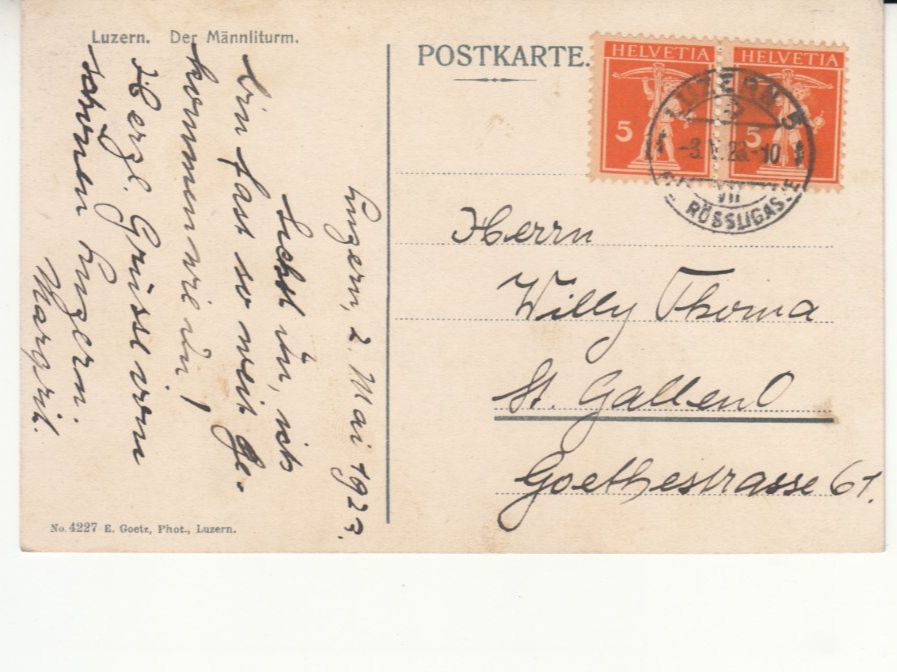 Luzern. Der Männliturm.
POSTKARTE.
HELVETIA
5
HELVETIA
5
LUZERN 5
-3.V.23.-10
VII
RÖSSLIGASSE
Luzern, 2. Mai 1923.
Siehst du, ich
bin fast so weit ge-
kommen wie du!
Herzl. Grüsse vom
schönen Luzern.
Margrit.
Herrn
Willy Thoma
St. Gallen O
Goethestrasse 61.
No. 4227 E. Goetz, Phot., Luzern.